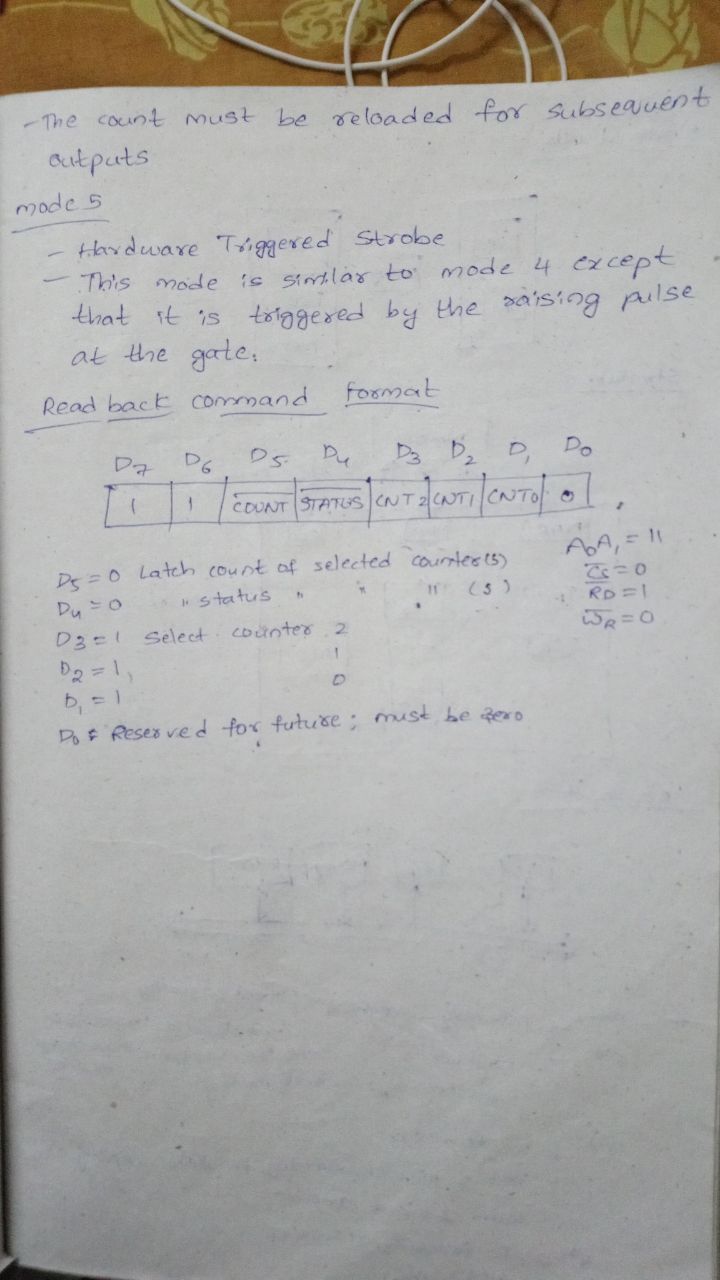 - The count must be reloaded for subsequent
outputs
mode 5
- Hardware Triggered Strobe
- This mode is similar to mode 4 except
that it is triggered by the raising pulse
at the gate.
Read back command format
D7 D6 D5 D4 D3 D2 D1 D0
1 1 C̅O̅U̅N̅T̅ S̅T̅A̅T̅U̅S̅ CNT2 CNT1 CNT0 0
D5 = 0 Latch count of selected counter(s)
D4 = 0 " status " " " (s)
D3 = 1 Select counter 2
D2 = 1, 1
D1 = 1 0
D0 : Reserved for future; must be zero
A0A1 = 11
C̅S̅ = 0
R̅D̅ = 1
W̅R̅ = 0